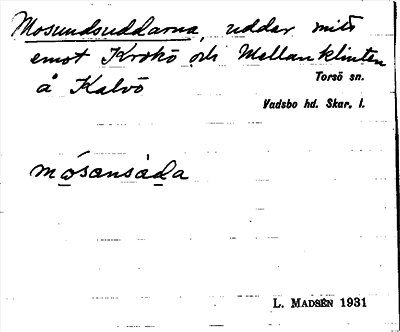 Mosundsuddarna, uddar mitt
emot Krokö och Mellanklinten
å Kalvö
Torsö sn.
Vadsbo hd. Skar. l.
mósansàda
L. MADSÉN 1931